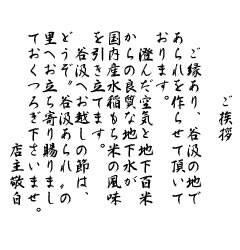 ご挨拶
ご縁あり、谷汲の地で
あられを作らせて頂いて
おります。
澄んだ空気と地下百米
からの良質な地下水が
国内産水稲もち米の風味
を引き立てます。
谷汲へお越しの節は、
どうぞ〝谷汲あられ〟の
里へお立ち寄り賜りまし
ておくつろぎ下さいませ。
店主敬白